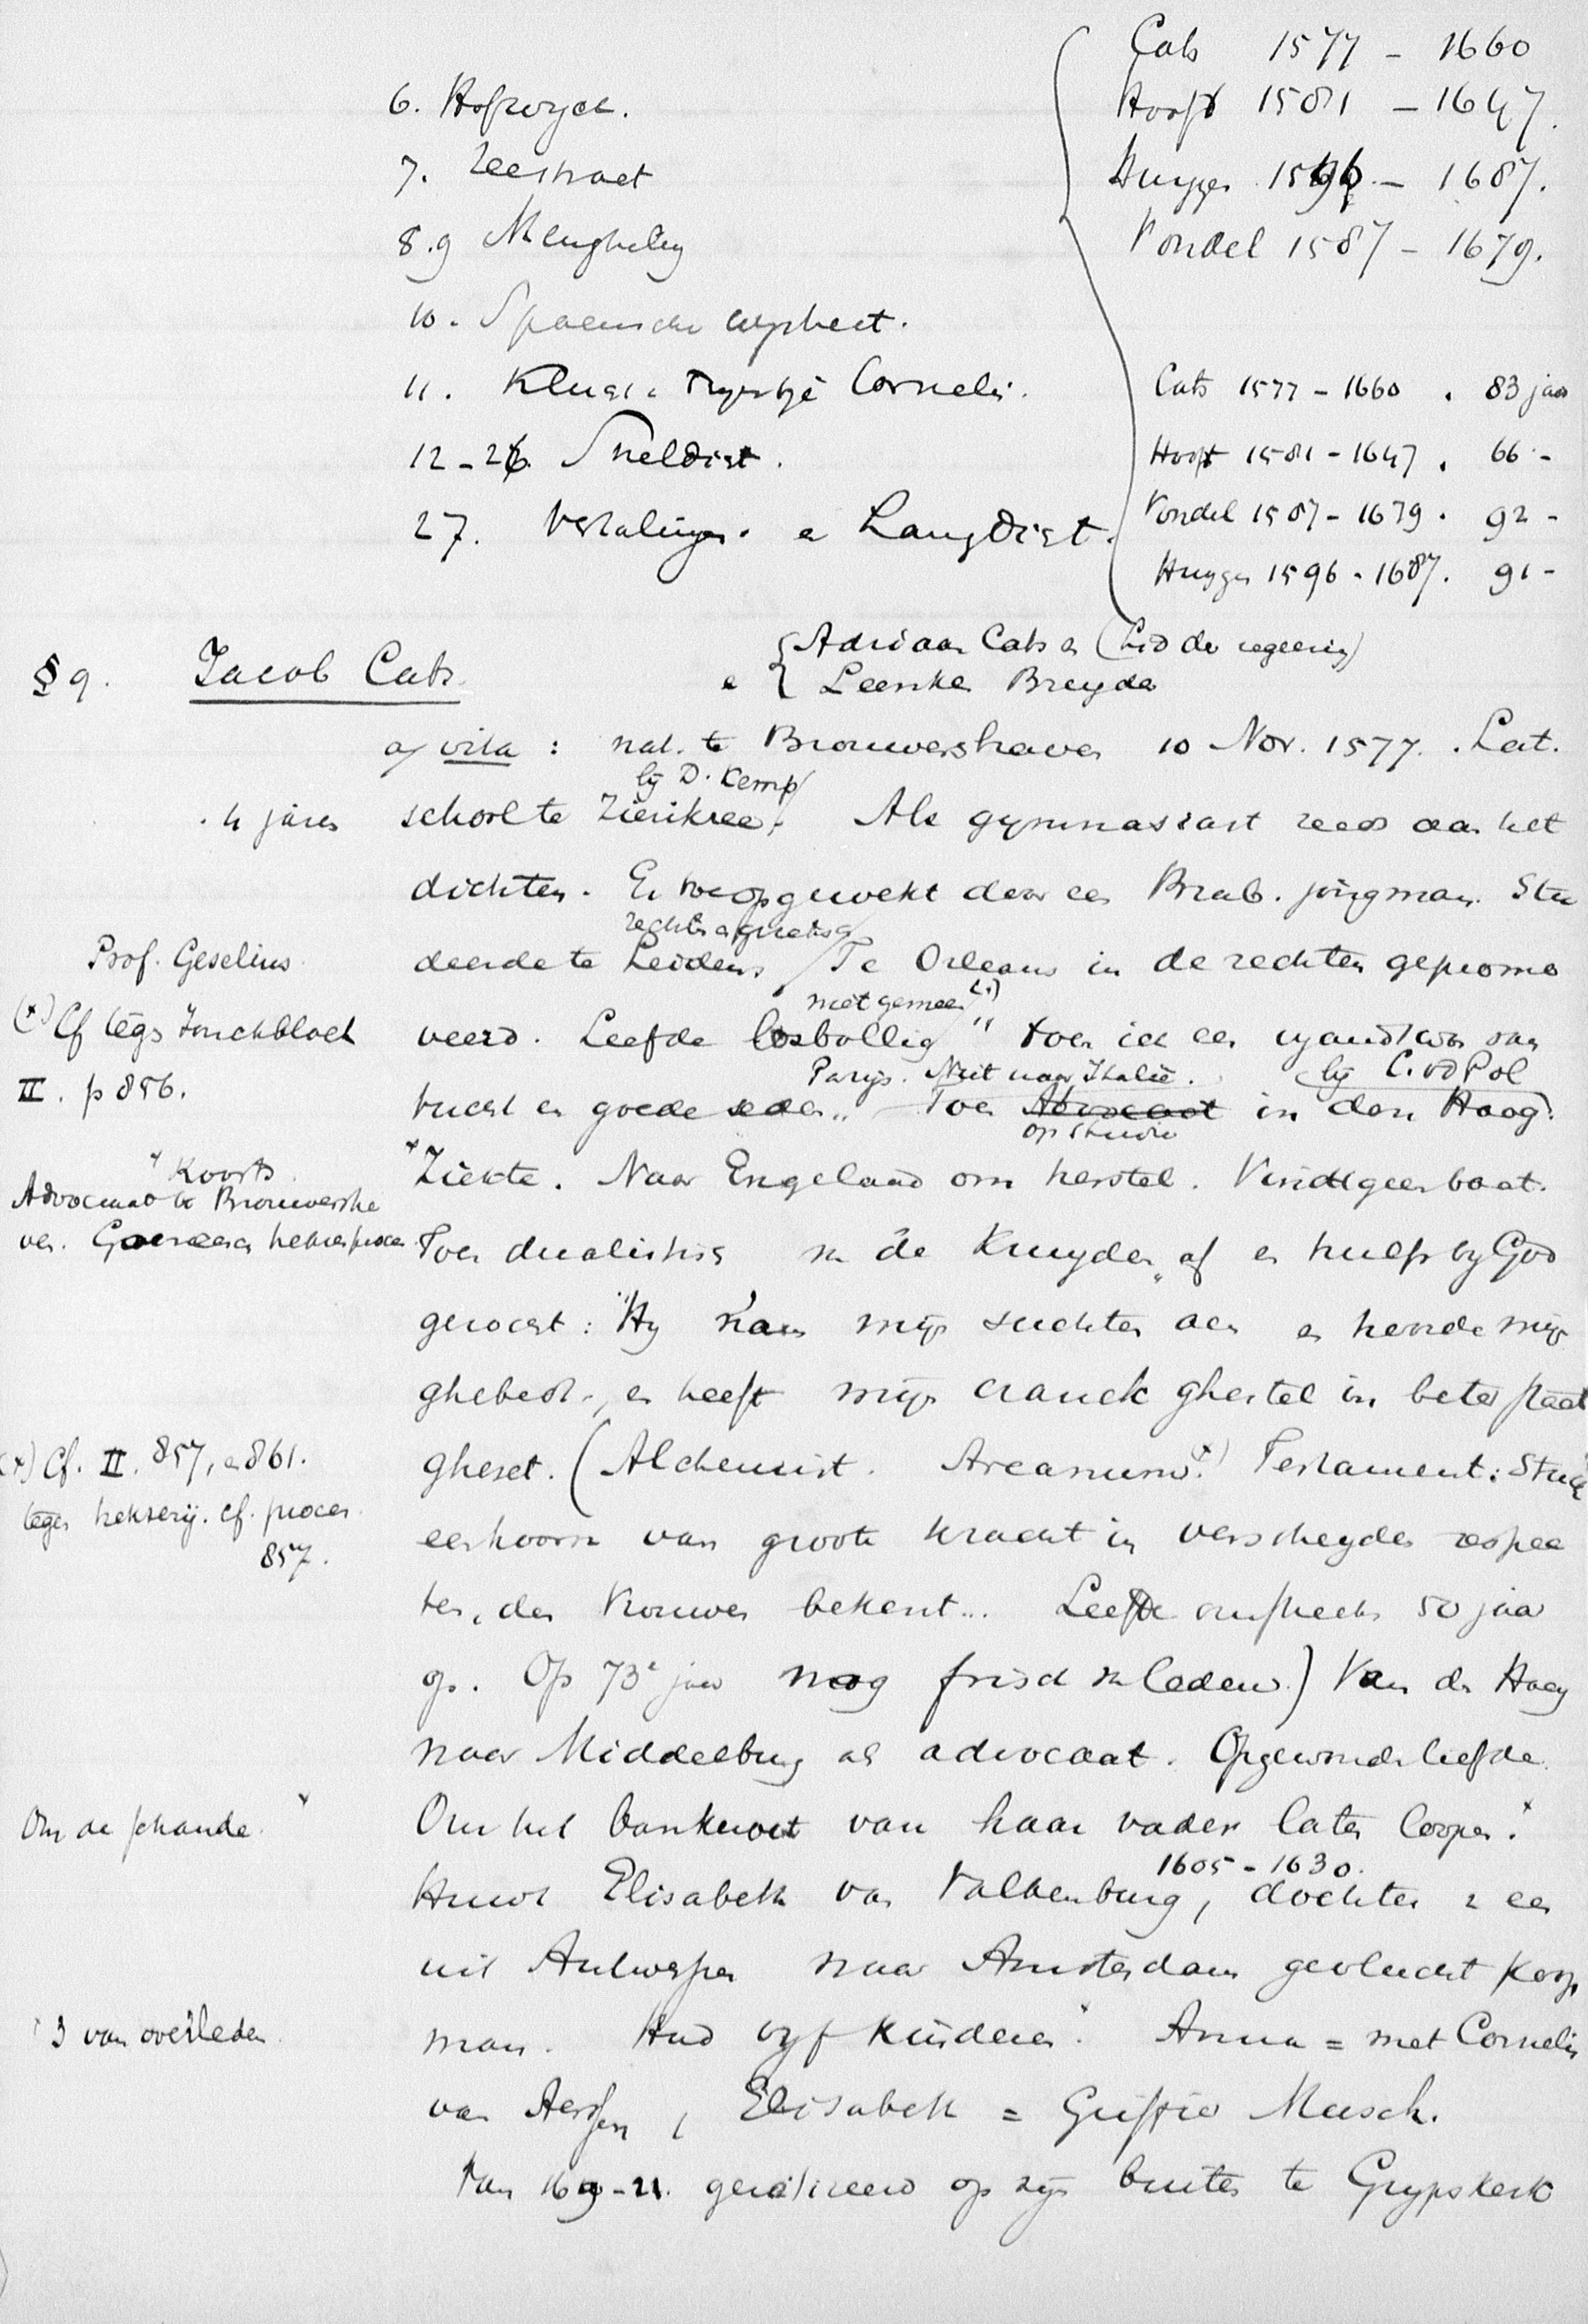 Cats 1577 - 1660
6. Hofwyck.
Hooft 1581 - 1647.
7. Zeestraet
Huygens 1596 - 1687.
8.9 Mengheling
Vondel 1587 - 1679.
10. Spaensche wysheit.
11. Klucht Tryntje Cornelis.
Cats 1577 - 1660 . 83 jaar
12 - 26. Sneldicht.
Hooft 1581 - 1647 . 66 -
27. Vertalingen. en Langdicht.
Vondel 1587 - 1679 . 92 -
Huygens 1596 - 1687. 91 -
Adriaan Cats en (Lid der regeering)
§ 9. Jacob Cats.
en Leenken Breyde
a/ vita : nat. te Brouwershaven 10 Nov. 1577. Lat.
bij D. Kemp
4 jaren
school te Zierikzee. Als gymnasiast reeds aan het
dichten. Er toe opgewekt door een Brab. jongman. Stu
rechten en grieksch
Prof. Geselius
deerde te Leiden, Te Orleans in de rechten gepromo
niet gemeen
(x) Cf tegs Jonckbloet
veerd. Leefde losbollig " toen ick een vyandt was van
II. p 856.
Parijs. Niet naar Italië. bij C. vd Pol
tucht en goede seden.. Toen Advocaat in den Haag.
op studie
x Koorts
x Ziekte. Naar Engeland om herstel. Vindt geen baat.
Advocaat te Brouwersha
ven. Goereesch heksenproces
Toen dualistisch in de Kruyden af en hulp by God
gezocht: "Hy nam mijn suchten aen en hoorde mijn
ghebedt, en heeft mijn cranck ghestel in beter staet
(x) Cf. II. 857, en 861.
gheset. (Alchemist. Arcanum.(x) Testament: Stuck
tegen hekserij. cf. proces
857.
eenhoorn van groote kracht in verscheyden respec
ten, den Vrouwen bekent... Leefde omstreeks 50 jaar
op. Op 73e jaar nog frisch in leden.) Van den Haag
naar Middelburg als advocaat. Opgewonden liefde.
Om de schande. x
Om het bankroet van haar vader laten loopen. x
1605 - 1630.
Huwt Elisabeth van Valkenburg, dochter v een
uit Antwerpen naar Amsterdam gevlucht koop
3 van overleden.
man. Had vyf kinderen. Anna = met Cornelis
van Aerssen, Elisabeth = Griffier Musch.
Van 1609-21. geretireerd op zijn buiten te Grypskerk